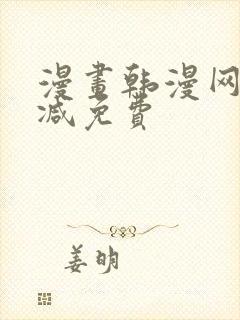 漫畫韩漫网
减免費
姜明